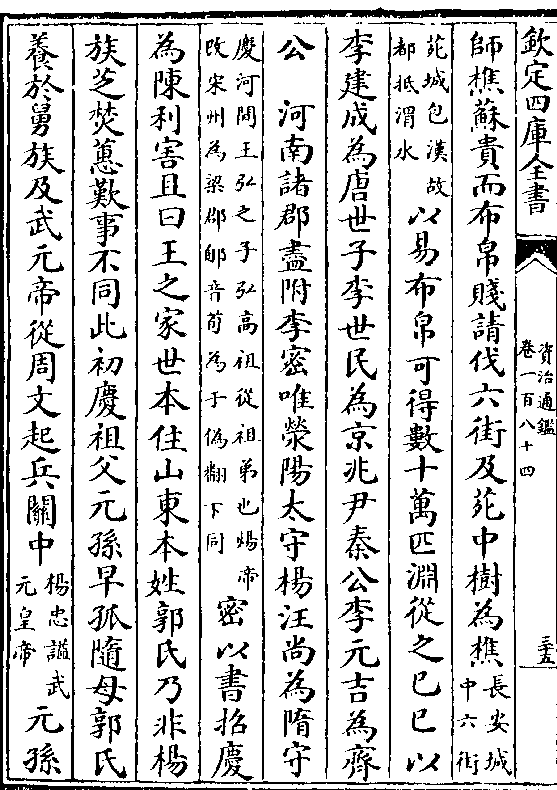 欽定四庫全書
資治通鑑
卷一百八十四
三十五
師樵蘇貴而布帛賤請伐六街及苑中樹為樵長安城中六街
苑城包漢故都抵渭水以易布帛可得數十萬匹淵從之己巳以
李建成為唐世子李世民為京兆尹秦公李元吉為齊
公　河南諸郡盡附李密唯滎陽太守楊汪尚為隋守
慶河間王弘之子弘高祖從祖弟也煬帝改宋州為梁郡郇音荀為于偽翻下同密以書招慶
為陳利害且曰王之家世本住山東本姓郭氏乃非楊
族芝焚蕙歎事不同此初慶祖父元孫早孤隨母郭氏
養於舅族及武元帝從周文起兵關中楊忠謚武元皇帝元孫